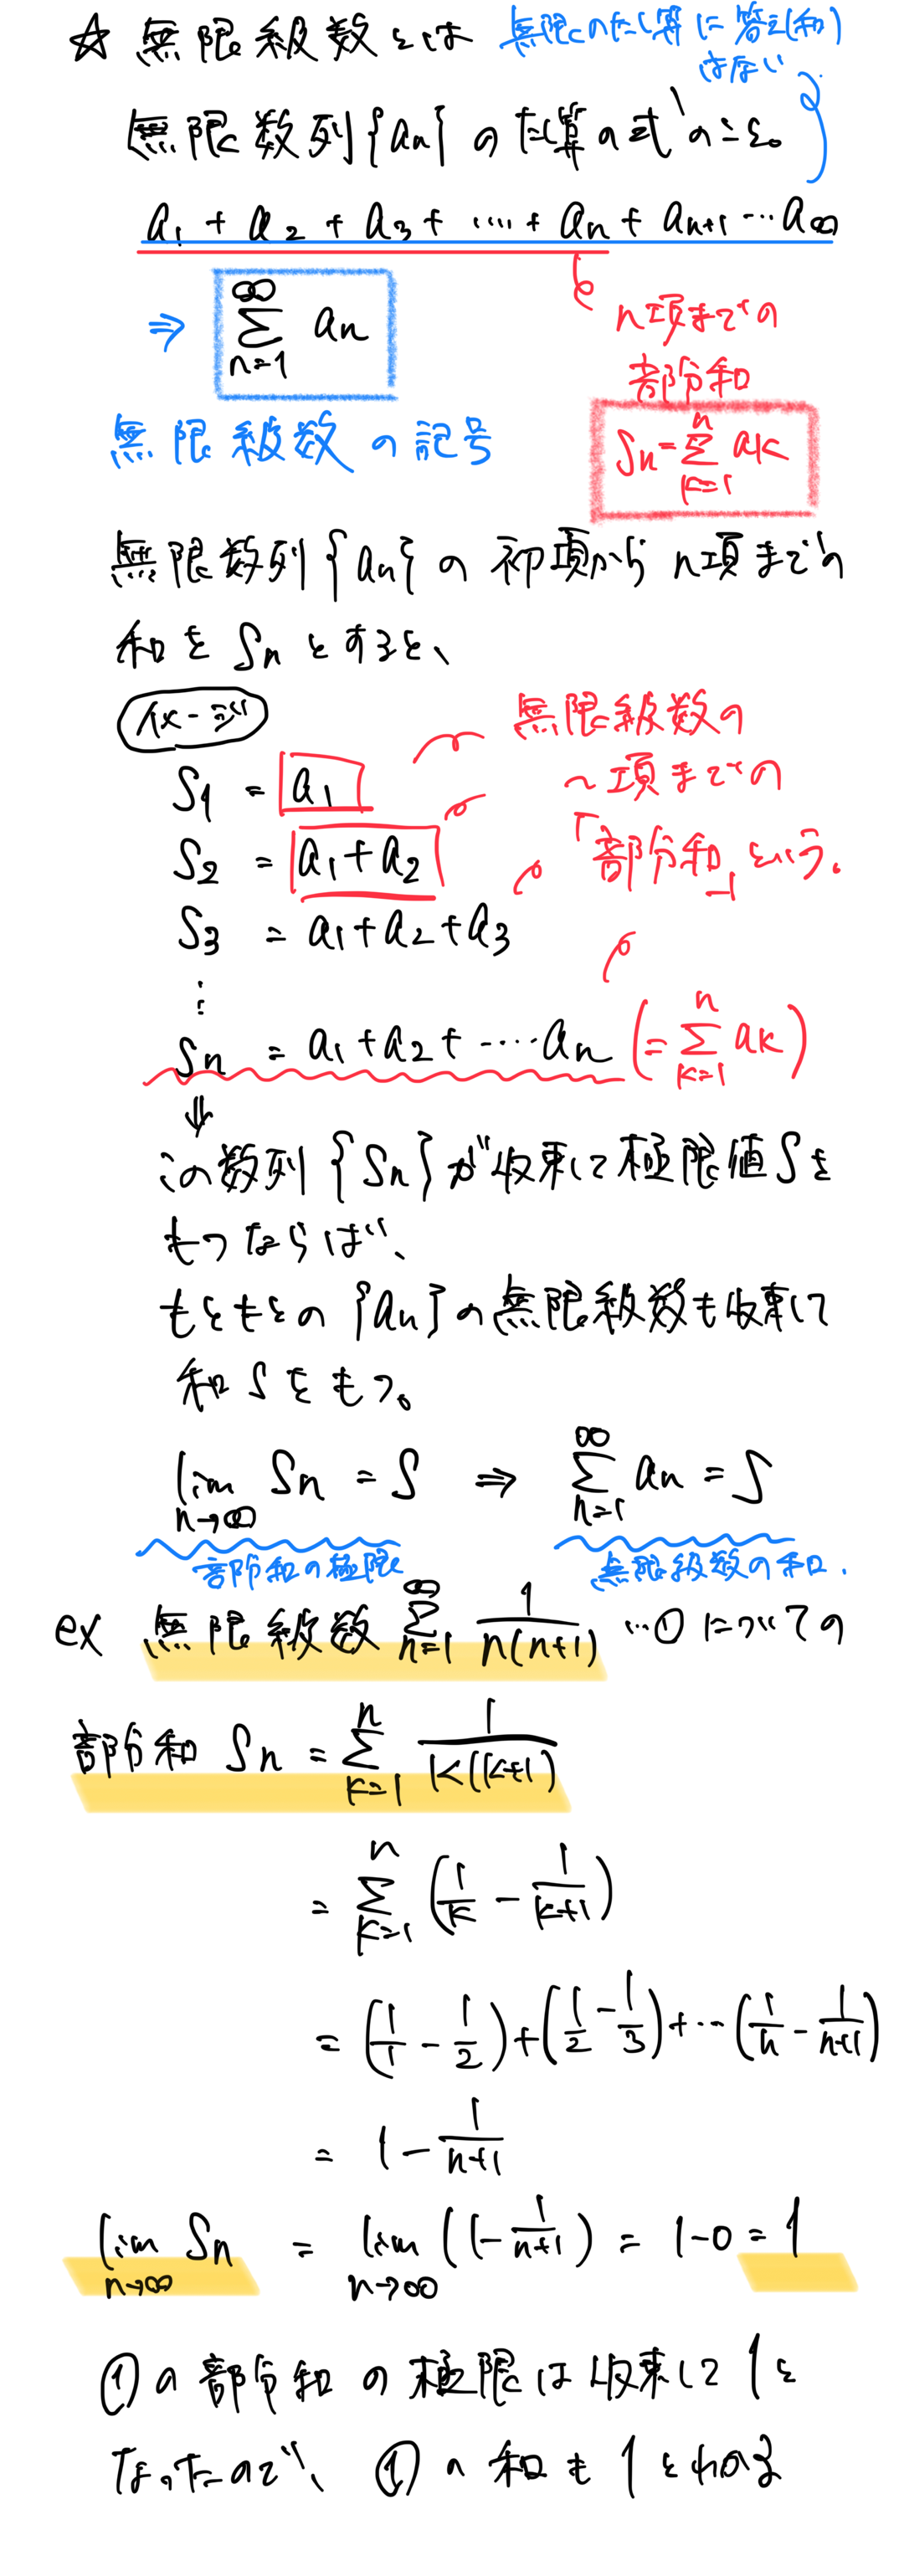 ☆ 無限級数とは
無限のたし算に答え(和)
はない
無限数列{an}のたし算の式のこと。
a1 + a2 + a3 + …… + an + an+1 … a∞
⇒ ∞Σn=1 an
n項までの
部分和
無限級数の記号
Sn = nΣk=1 ak
無限数列{an}の初項からn項までの
和をSnとすると、
イメージ
S1 = a1
無限級数の
n項までの
「部分和」という。
S2 = a1+a2
S3 = a1+a2+a3
⋮
Sn = a1+a2+……an (= nΣk=1 ak)
⇓
この数列{Sn}が収束して極限値Sを
もつならば、
もともとの{an}の無限級数も収束して
和Sをもつ。
lim n→∞ Sn = S ⇒ ∞Σn=1 an = S
部分和の極限 無限級数の和.
ex 無限級数 ∞Σn=1 1/n(n+1) …① についての
部分和 Sn = nΣk=1 1/k(k+1)
= nΣk=1 (1/k - 1/k+1)
= (1/1 - 1/2)+(1/2 - 1/3)+…(1/n - 1/n+1)
= 1 - 1/n+1
lim n→∞ Sn = lim n→∞ (1 - 1/n+1) = 1-0 = 1
①の部分和の極限は収束して1と
なったので、①の和も1とわかる